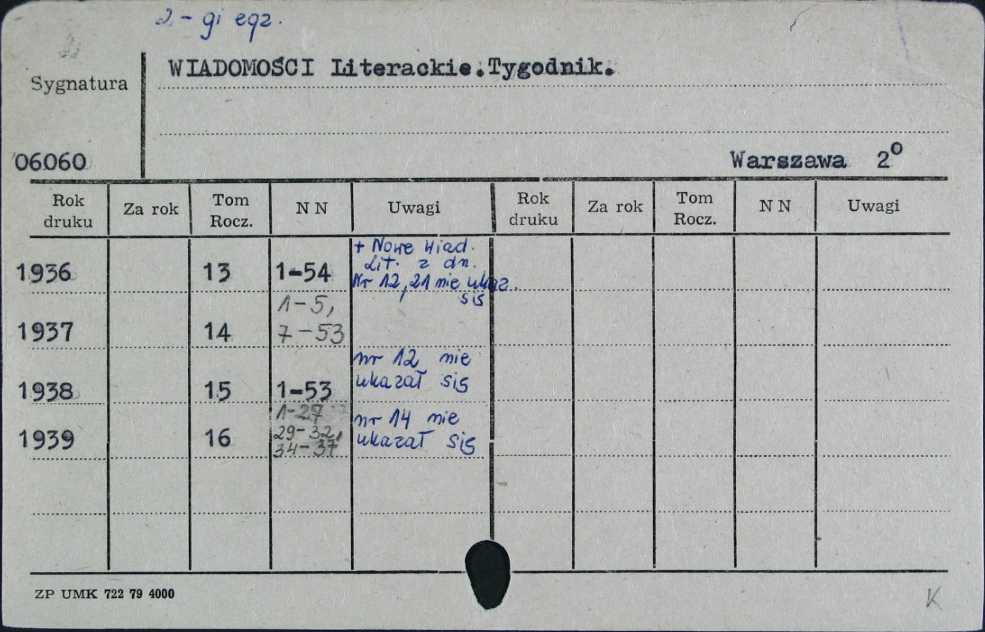 2-gi egz.
WIADOMOŚCI Literackie.Tygodnik.
Sygnatura
06060
Warszawa 2°
Rok druku Za rok Tom Rocz. N N Uwagi Rok druku Za rok Tom Rocz. N N Uwagi
+ Nowe Wiad.
Lit. z dn.
1936 13 1-54 Nr 12, 21 nie ukaz.
się
1-5,
1937 14 7-53
nr 12 nie
1938 15 1-53 ukazał się
1-27
nr 14 nie
1939 16 29-32, ukazał się
34-37
ZP UMK 722 79 4000
K